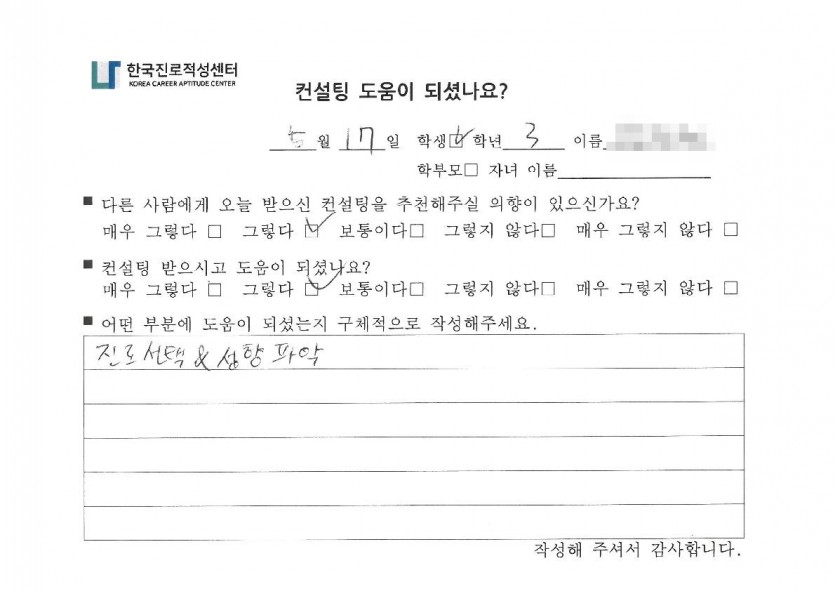 한국진로적성센터
KOREA CAREER APTITUDE CENTER
컨설팅 도움이 되셨나요?
5월 17일 학생☑ 학년 3 이름
학부모□ 자녀 이름
■ 다른 사람에게 오늘 받으신 컨설팅을 추천해주실 의향이 있으신가요?
매우 그렇다 □ 그렇다 ☑ 보통이다□ 그렇지 않다□ 매우 그렇지 않다 □
■ 컨설팅 받으시고 도움이 되셨나요?
매우 그렇다 □ 그렇다 ☑ 보통이다□ 그렇지 않다□ 매우 그렇지 않다 □
■ 어떤 부분에 도움이 되셨는지 구체적으로 작성해주세요.
진로선택 & 성향 파악
작성해 주셔서 감사합니다.